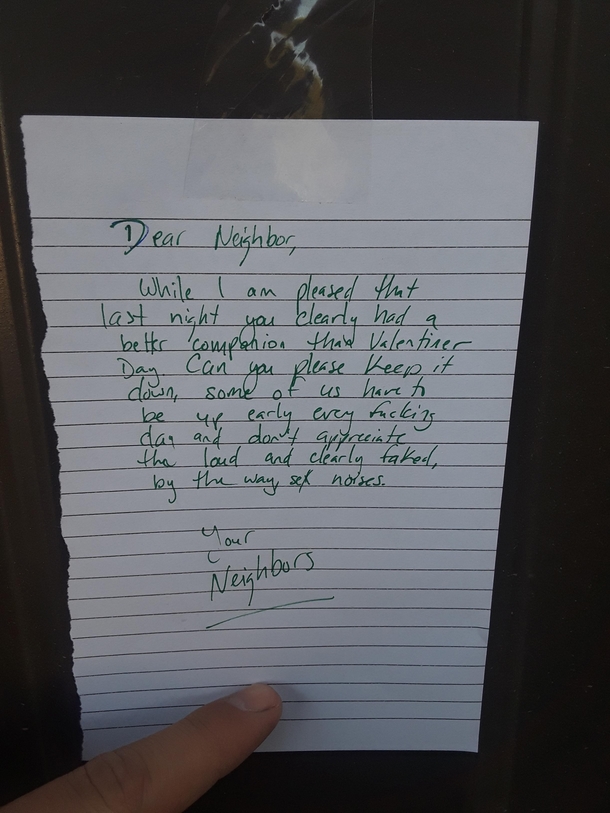 Dear Neighbor,
While I am pleased that
last night you clearly had a
better companion than Valentines
Day Can you please keep it
down, some of us have to
be up early every fucking
day and don't appreciate
the loud and clearly faked,
by the way, sex noises.
Your
Neighbors